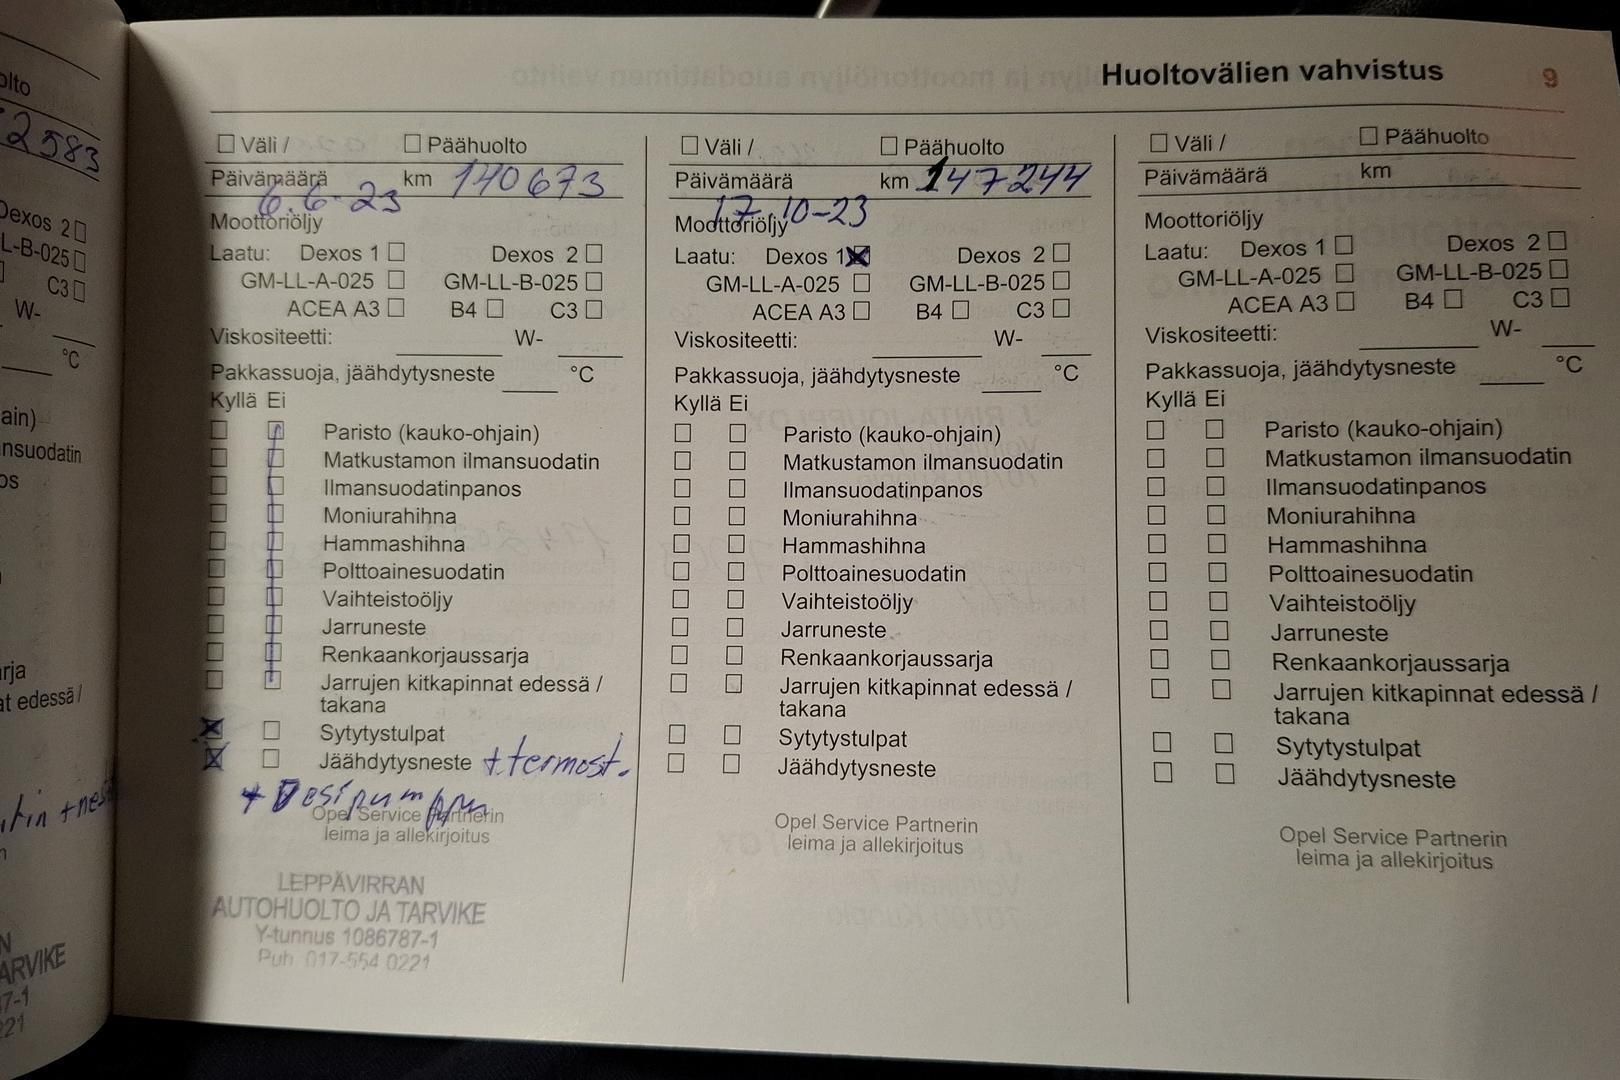 olto
2583
Dexos 2
L-B-025
C3
W-
°C
ain)
nsuodatin
os
rja
at edessä /
N
ARVIKE
7-1
221
Huoltovälien vahvistus 9
Väli / Päähuolto
Päivämäärä km 140673
6.6-23
Moottoriöljy
Laatu: Dexos 1 Dexos 2
GM-LL-A-025 GM-LL-B-025
ACEA A3 B4 C3
Viskositeetti: W-
Pakkassuoja, jäähdytysneste °C
Kyllä Ei
Paristo (kauko-ohjain)
Matkustamon ilmansuodatin
Ilmansuodatinpanos
Moniurahihna
Hammashihna
Polttoainesuodatin
Vaihteistoöljy
Jarruneste
Renkaankorjaussarja
Jarrujen kitkapinnat edessä /
takana
Sytytystulpat
Jäähdytysneste + termost.
+ Vesipumppu
Opel Service Partnerin
leima ja allekirjoitus
LEPPÄVIRRAN
AUTOHUOLTO JA TARVIKE
Y-tunnus 1086787-1
Puh 017-554 0221
Väli / Päähuolto
Päivämäärä km 147244
17.10-23
Moottoriöljy
Laatu: Dexos 1 Dexos 2
GM-LL-A-025 GM-LL-B-025
ACEA A3 B4 C3
Viskositeetti: W-
Pakkassuoja, jäähdytysneste °C
Kyllä Ei
Paristo (kauko-ohjain)
Matkustamon ilmansuodatin
Ilmansuodatinpanos
Moniurahihna
Hammashihna
Polttoainesuodatin
Vaihteistoöljy
Jarruneste
Renkaankorjaussarja
Jarrujen kitkapinnat edessä /
takana
Sytytystulpat
Jäähdytysneste
Opel Service Partnerin
leima ja allekirjoitus
Väli / Päähuolto
Päivämäärä km
Moottoriöljy
Laatu: Dexos 1 Dexos 2
GM-LL-A-025 GM-LL-B-025
ACEA A3 B4 C3
Viskositeetti: W-
Pakkassuoja, jäähdytysneste °C
Kyllä Ei
Paristo (kauko-ohjain)
Matkustamon ilmansuodatin
Ilmansuodatinpanos
Moniurahihna
Hammashihna
Polttoainesuodatin
Vaihteistoöljy
Jarruneste
Renkaankorjaussarja
Jarrujen kitkapinnat edessä /
takana
Sytytystulpat
Jäähdytysneste
Opel Service Partnerin
leima ja allekirjoitus